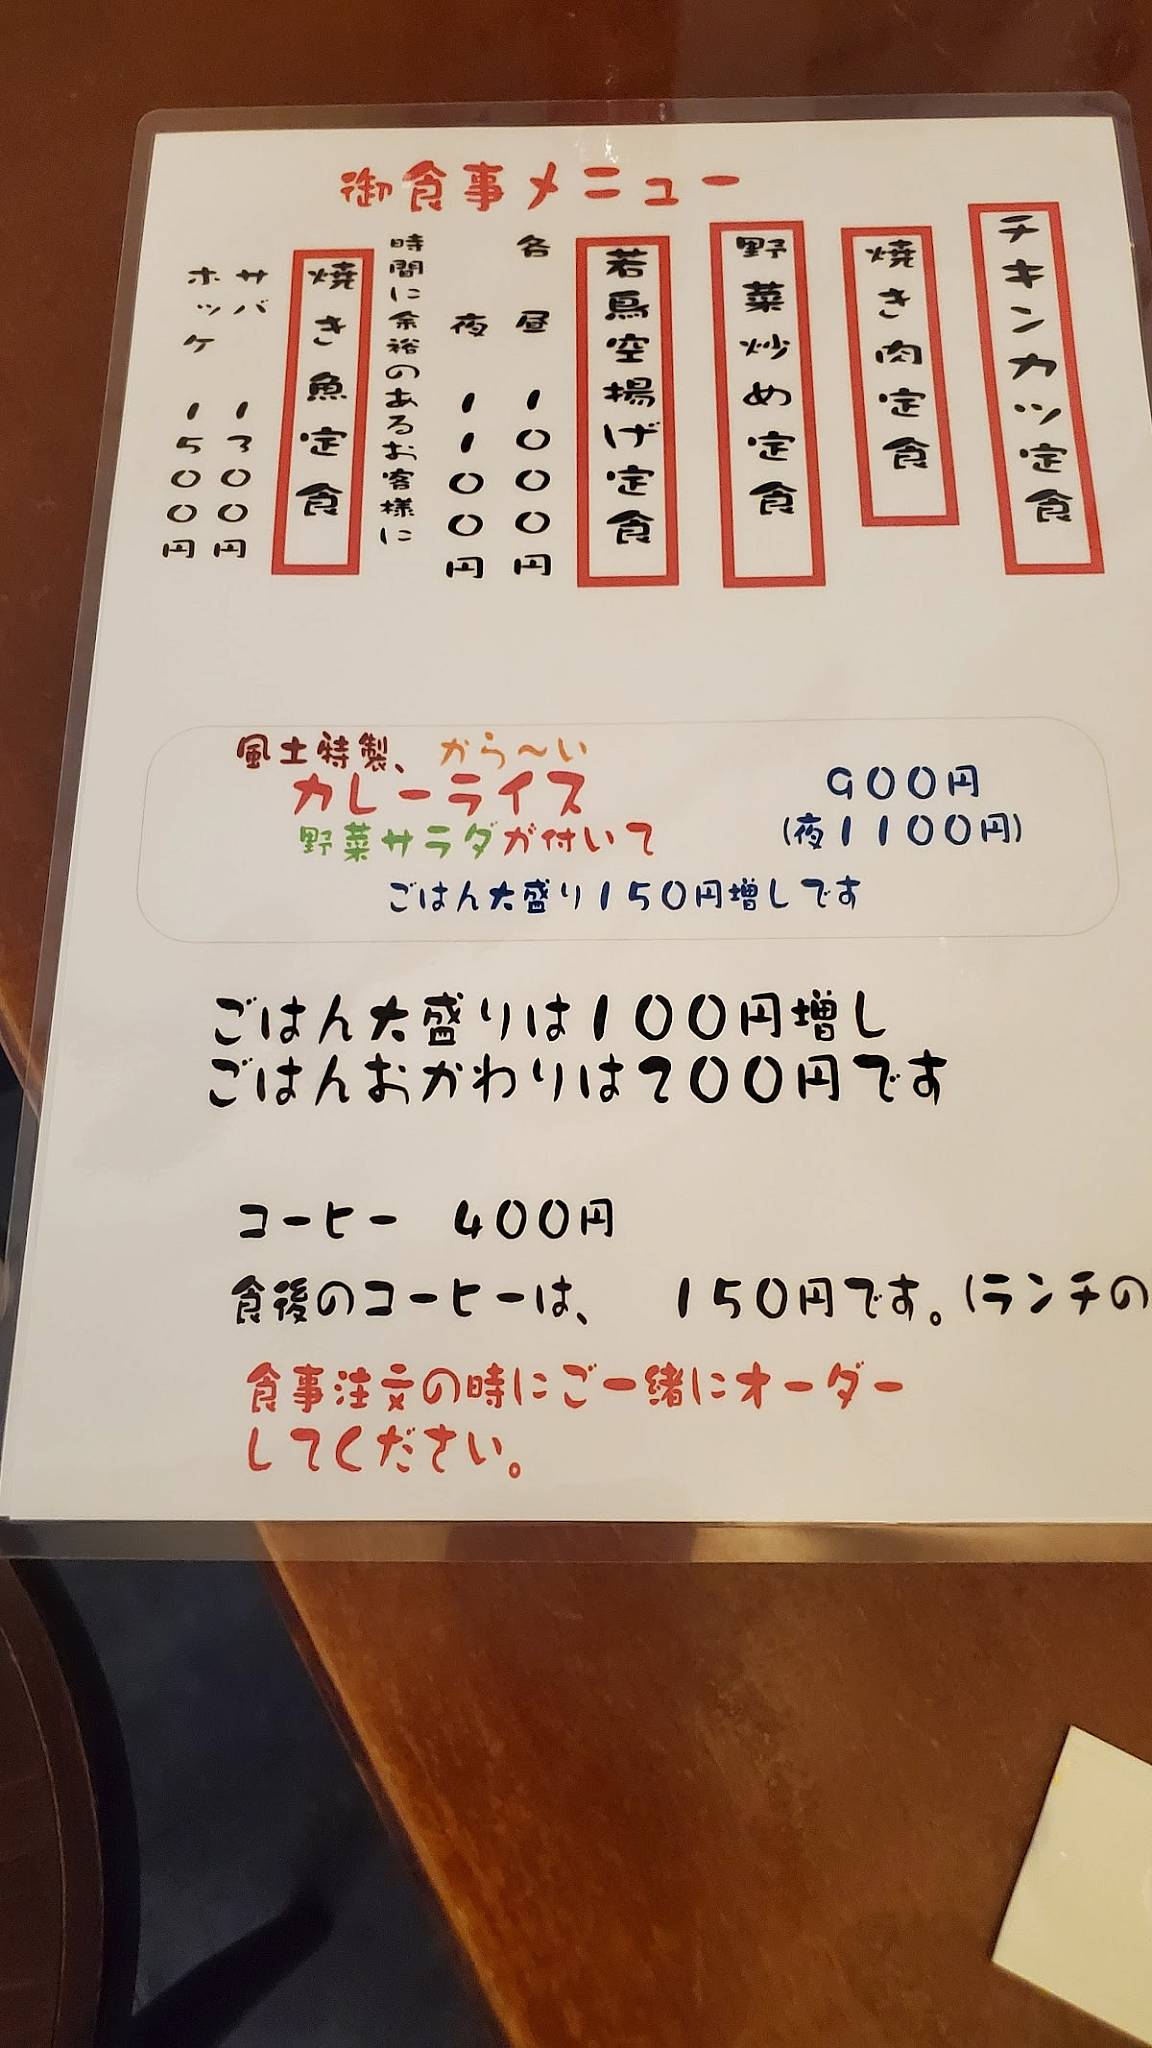 御食事メニュー
チキンカツ定食
焼き肉定食
野菜炒め定食
若鳥空揚げ定食
各 昼 1000円
夜 1100円
時間に余裕のあるお客様に
焼き魚定食
サバ 1300円
ホッケ 1500円
風土特製、から〜い
カレーライス 900円
野菜サラダが付いて (夜1100円)
ごはん大盛り150円増しです
ごはん大盛りは100円増し
ごはんおかわりは200円です
コーヒー 400円
食後のコーヒーは、 150円です。(ランチの
食事注文の時にご一緒にオーダー
してください。